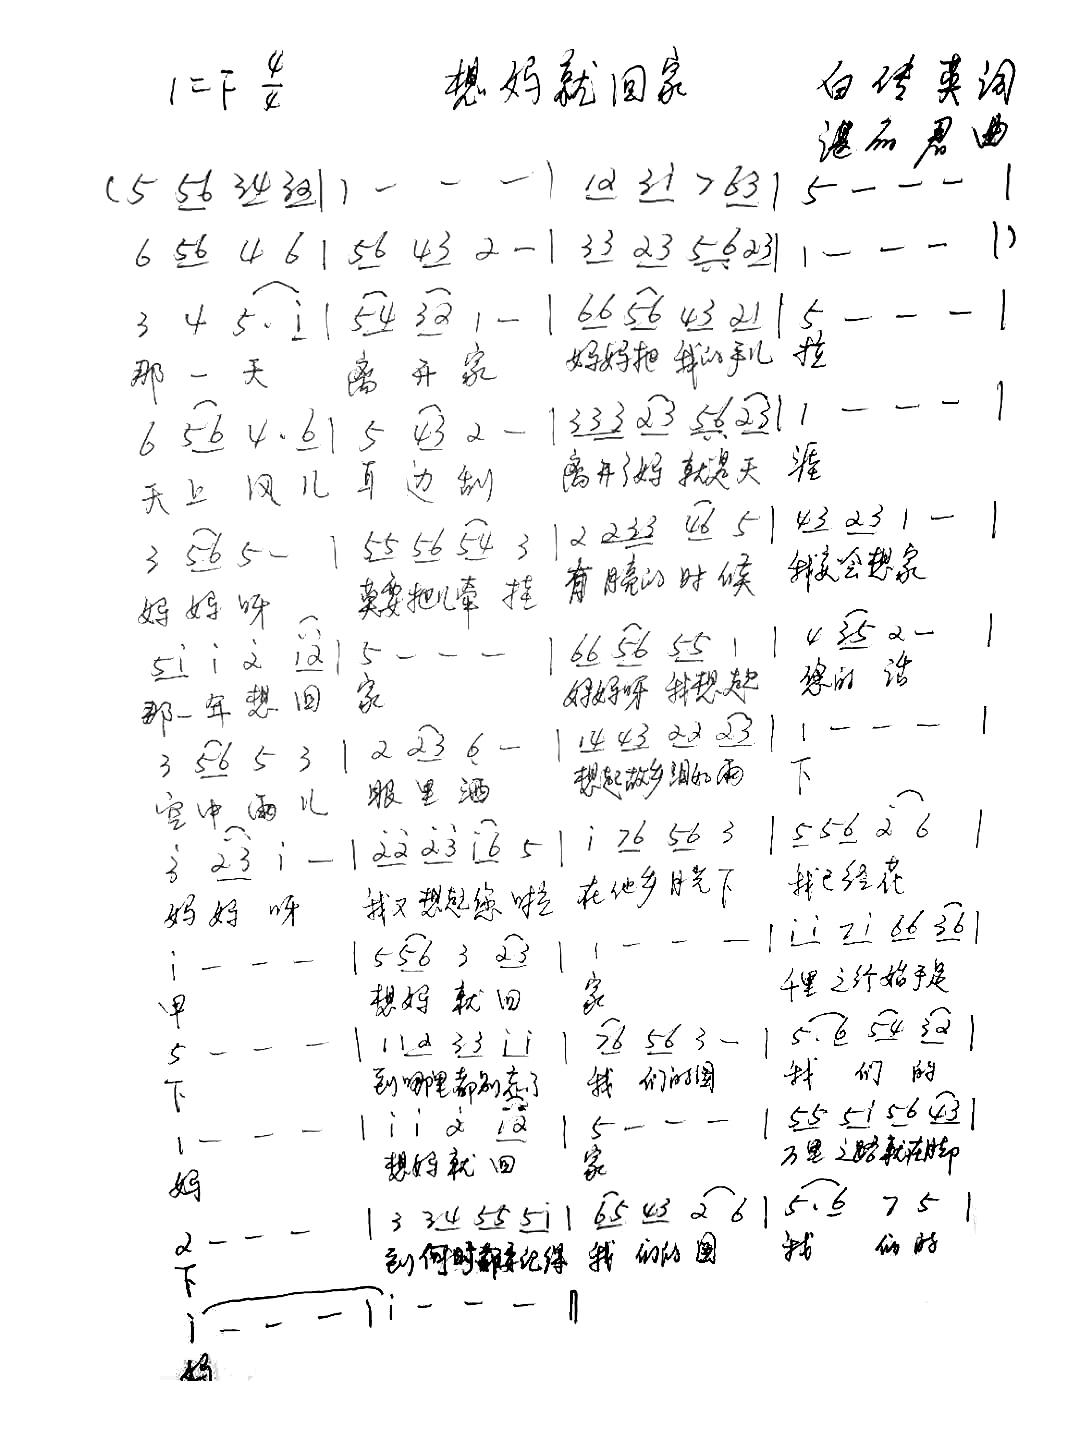 1=F 4/4 想妈就回家 白传英词
湛石君曲
(5 56 34 32 | 1 - - - | 12 31 7 63 | 5 - - - |
6 56 4 6 | 56 43 2 - | 33 23 56 23 | 1 - - - |)
3 4 5. i | 54 32 1 - | 66 56 43 21 | 5 - - - |
那一天 离开家 妈妈把我的手儿拉
6 56 4. 6 | 5 43 2 - | 333 23 56 23 | 1 - - - |
天上风儿耳边刮 离开了妈就是天涯
3 56 5 - | 55 56 54 3 | 2 233 46 5 | 43 23 1 - |
妈妈呀 莫要把儿牵挂 有月亮的时候 我会想家
5i i 2 i2 | 5 - - - | 66 56 55 1 | 4 35 2 - |
那一年想回家 妈妈呀我想起 您的话
3 56 5 3 | 2 23 6 - | 14 43 22 23 | 1 - - - |
空中雨儿眼里洒 想起故乡泪如雨下
3 23 i - | 22 23 i6 5 | i 76 56 3 | 556 2 6 |
妈妈呀 我又想起您啦 在他乡月光下 我已经花
i - - - | 5 56 3 23 | 1 - - - | i i 7i 66 36 |
甲 想妈就回家 千里之行始于足
5 - - - | 112 33 ii | 76 56 3 - | 5. 6 54 32 |
下 到哪里都别忘了 我们的国 我们的
1 - - - | i i 2 i2 | 5 - - - | 55 51 56 43 |
妈 想妈就回家 万里之路就在脚
2 - - - | 3 34 55 5i | 65 43 2 6 | 5. 6 7 5 |
下 到何时都要记得 我们的国 我们的
i - - - | i - - - ||
妈